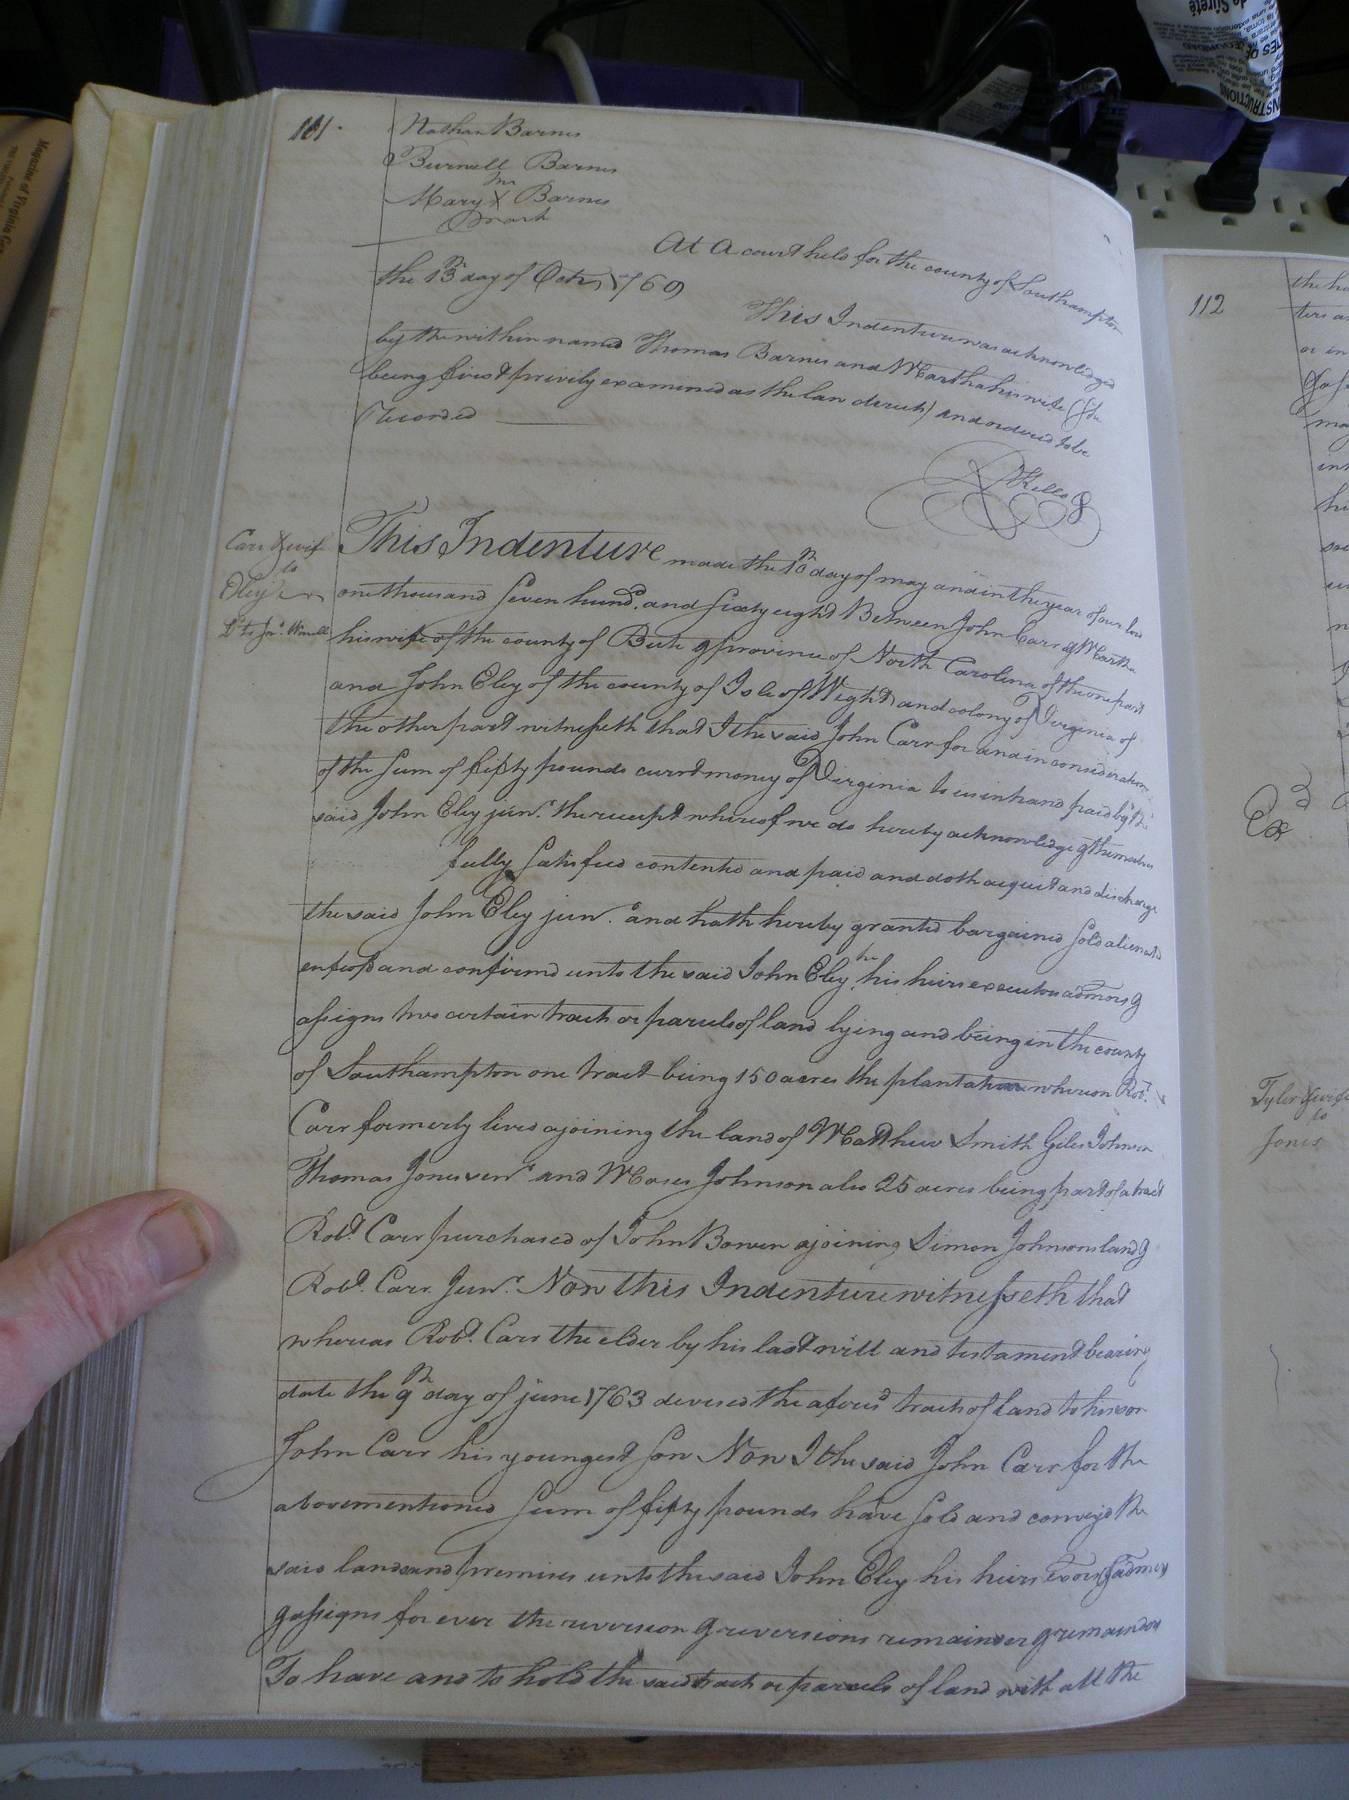 101.
Nathan Barnes
Burwell Barnes
her
Mary X Barnes
mark
At A court held for the county of Southampton
the 13th day of Octr, 1769
This Indenture was acknowledged
by the within named Thomas Barnes and Martha his wife (she
being first privily examined as the law directs) and ordered to be
Recorded
R Kello
Carr & wife
to
Eley
This Indenture made the 10th day of may and in the year of our lord
one thousand Seven hund.d and Sixty eight Between John Carr & Martha
his wife of the county of Bute & province of North Carolina of the one part
and John Eley of the county of Isle of Wight and colony of Virginia of
the other part witnesseth that I the said John Carr for and in consideration
of the Sum of fifty pounds curr.t money of Virginia to us in hand paid by the
said John Eley jun.r the receipt whereof we do hereby acknowledge & themselves
fully Satisfied contented and paid and doth acquit and discharge
the said John Eley jun.r and hath hereby granted bargained Sold alienated
enfeof'd and confirmd unto the said John Eley, his heirs executors admors &
assigns two certain tracts or parcels of land lying and being in the county
of Southampton one tract being 150 acres the plantation whereon Rob.t
Carr formerly lived ajoining the land of Matthew Smith Giles Johnson
Thomas Jones sen.r and Moses Johnson also 25 acres being part of a tract
Rob.t Carr purchased of John Bowen ajoining Simon Johnsons land &
Rob.t Carr Jun.r Now this Indenture witnesseth that
whereas Rob.t Carr the elder by his last will and testament bearing
date the 9th day of june 1763 devised the afores.d tracts of land to his son
John Carr his youngest Son Now I the said John Carr for the
abovementioned Sum of fifty pounds have Sold and conveyd the
said lands and premises unto the said John Eley his heirs Exors & admors
& assigns for ever the reversion & reversions remainder & remainders
To have and to hold the said tracts or parcels of land with all the
112
Ex
Tyler & wife
to
Jones